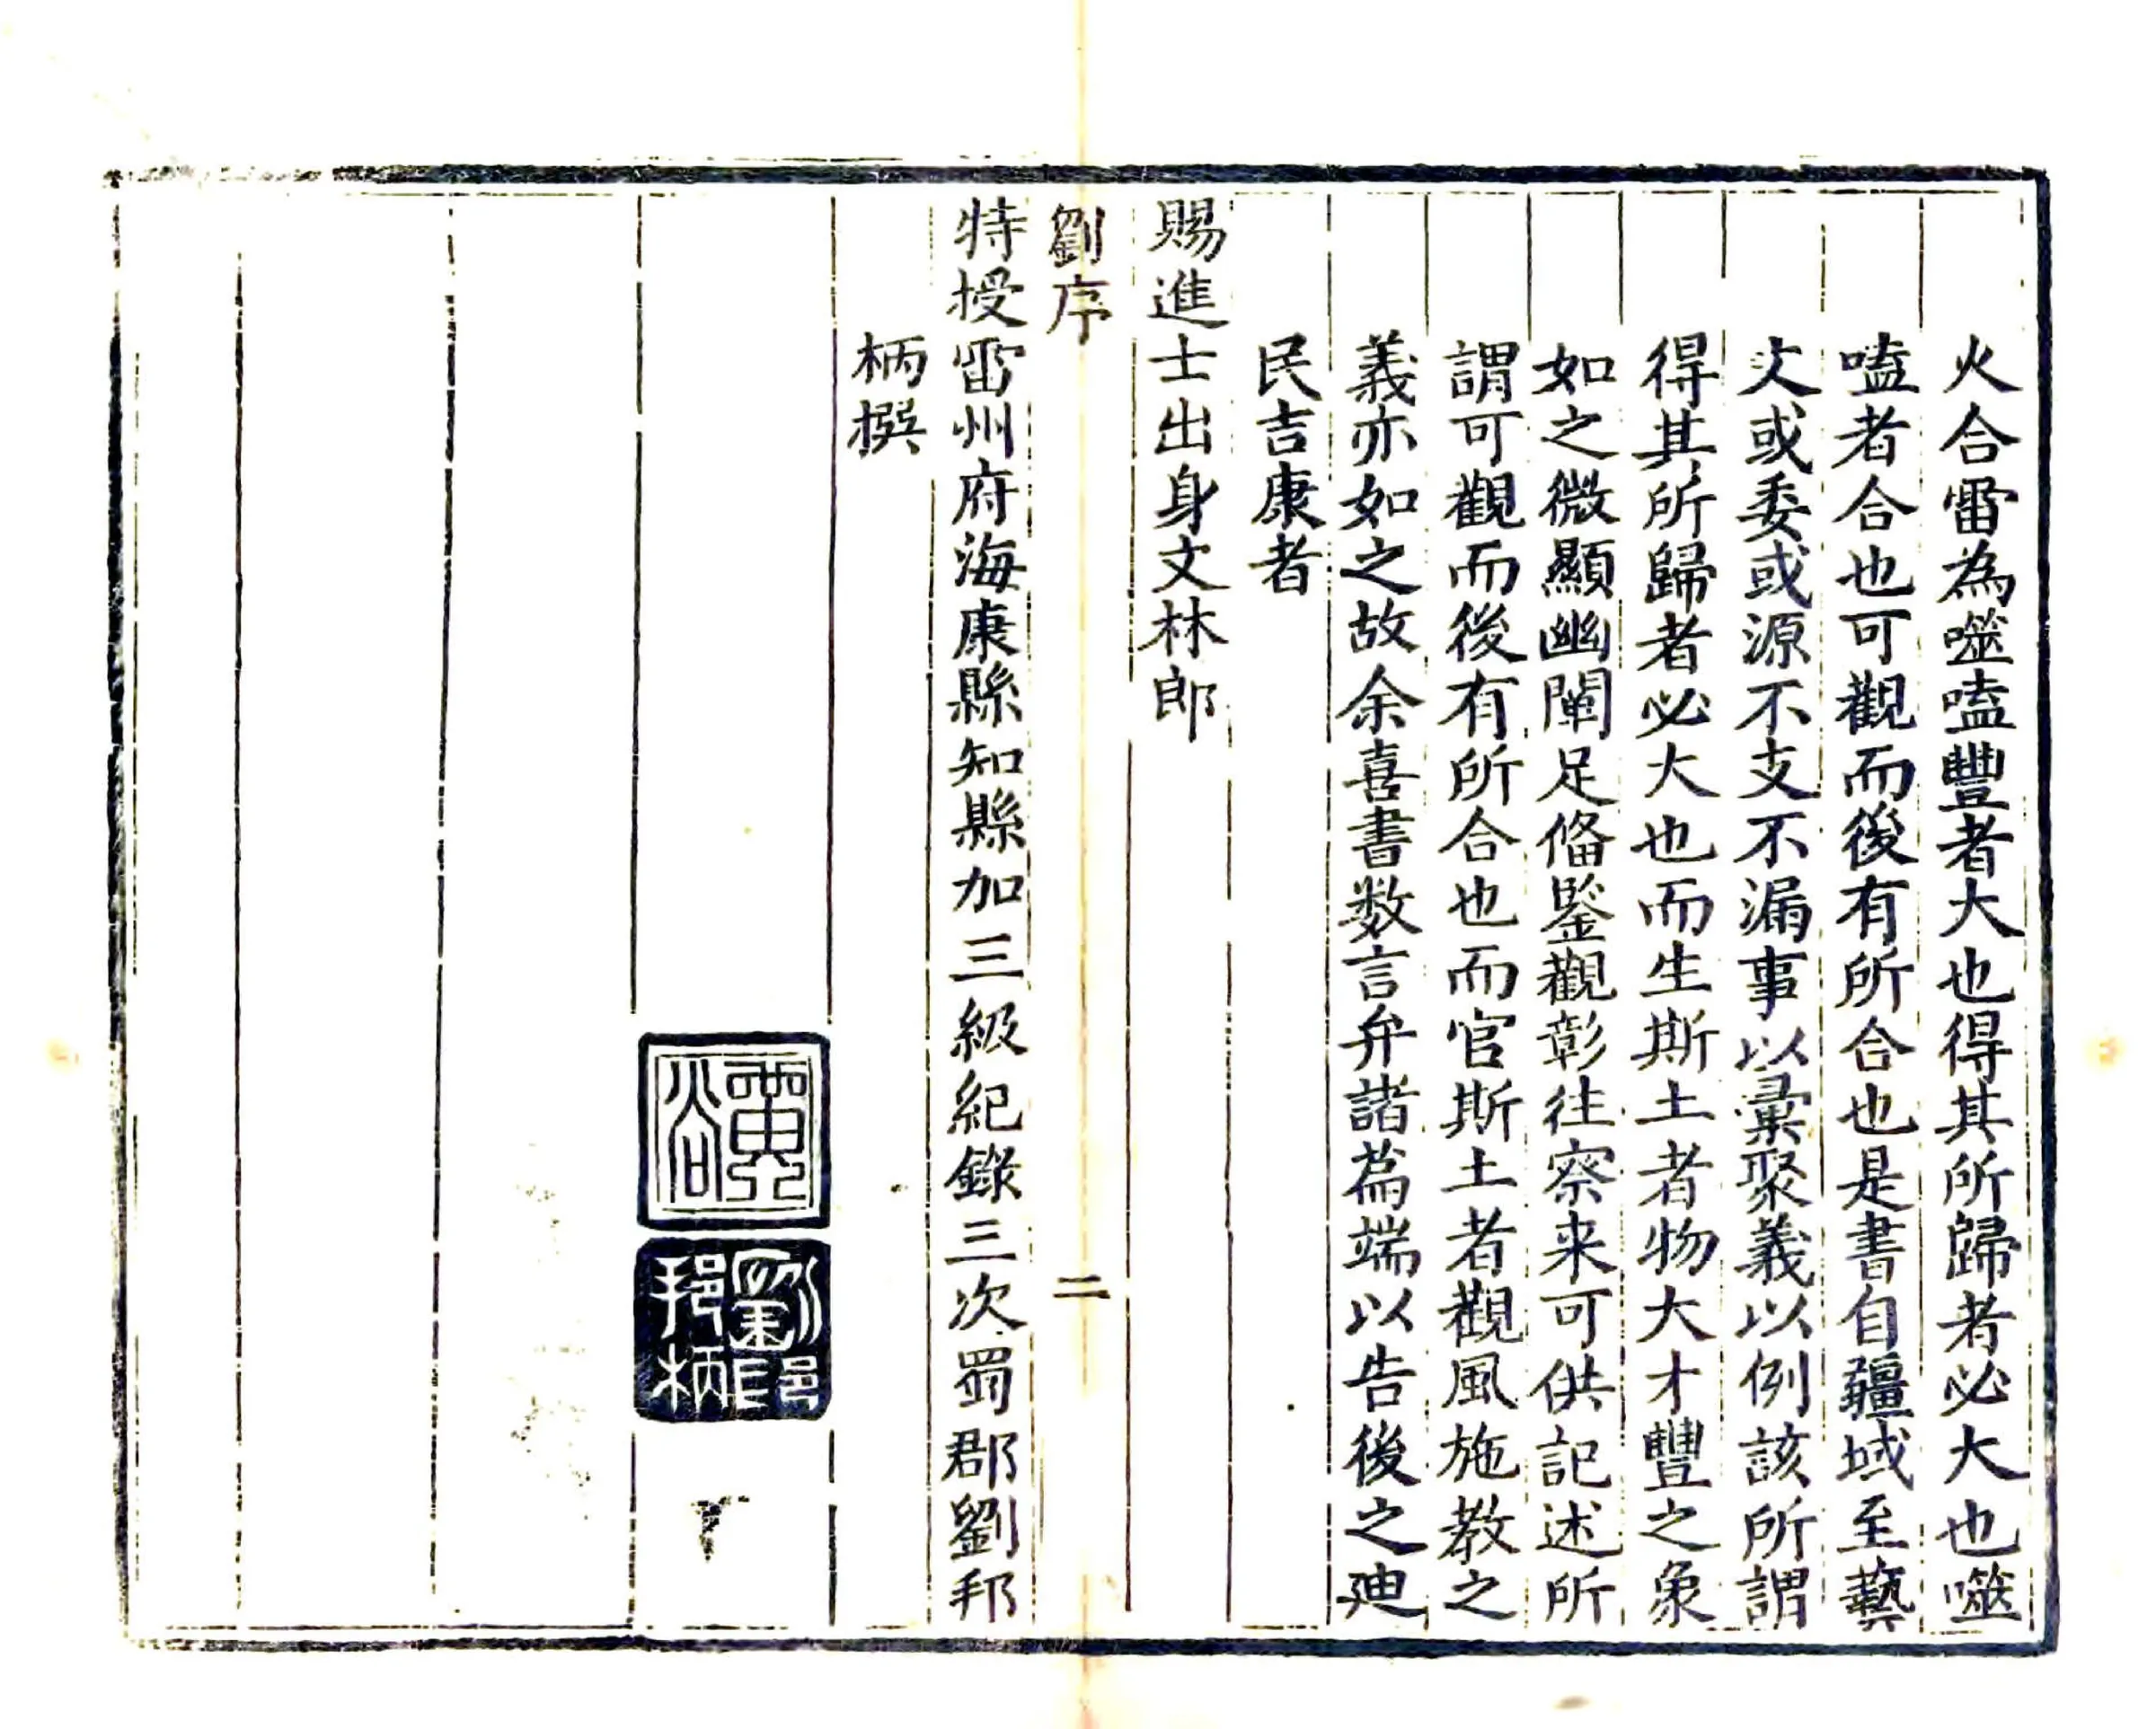 火合雷為噬嗑豐者大也得其所歸者必大也噬
嗑者合也可觀而後有所合也是書自疆域至藝
文或委或源不支不漏事以彙聚義以例該所謂
得其所歸者必大也而生斯土者物大才豐之象
如之微顯幽闡足俻鑒觀彰徃察来可供記述所
謂可觀而後有所合也而官斯土者觀風施教之
義亦如之故余喜書数言弁諸篇端以告後之廸
民吉康者
賜進士出身文林郎
劉序
二
特授雷州府海康縣知縣加三級紀錄三次蜀郡劉邦
柄撰
劉邦柄印